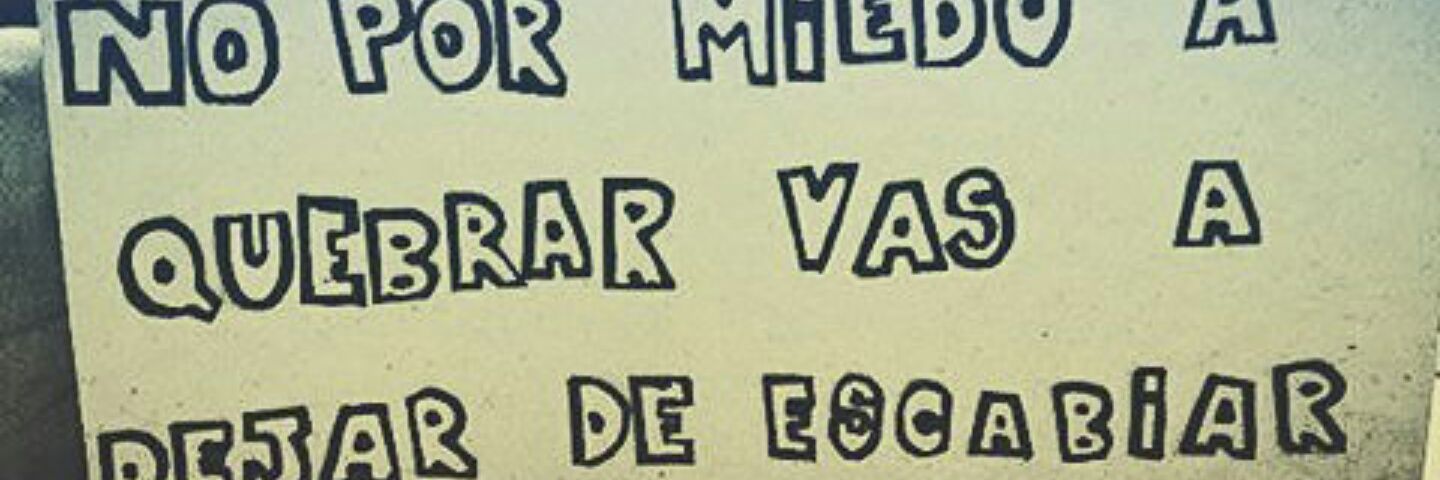 NO POR MiEDO A
QUEBRAR VAS A
DEJAR DE ESCABiAR